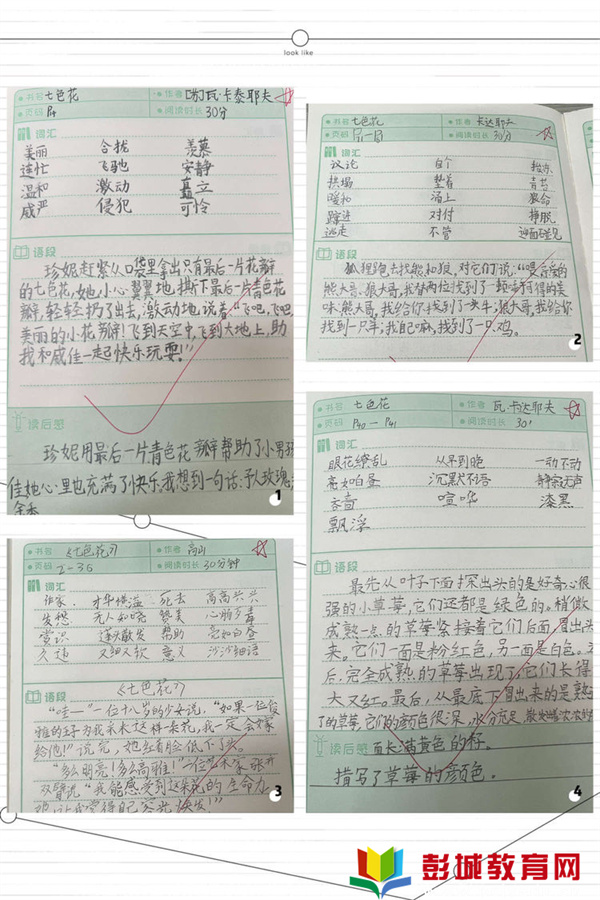 look like
书名 七色花
作者 [苏]瓦·卡泰耶夫
页码 P4
阅读时长 30分
词汇
美丽 合拢 羡慕
连忙 飞驰 安静
温和 激动 矗立
威严 侵犯 可怜
语段
珍妮赶紧从口袋里拿出只有最后一片花瓣
的七色花,她小心翼翼地,撕下最后一片青色花
瓣,轻轻扔了出去,激动地,说着:“飞吧,飞吧,
美丽的小花瓣!飞到天空中,飞到大地上,助
我和威佳一起快乐玩耍!”
读后感
珍妮用最后一片青色花瓣帮助了小男孩
佳,她心里也充满了快乐,我想到一句话:予人玫瑰,
1
书名 七色花
作者 卡达耶夫
页码
阅读时长 30分
词汇
议论 自个
拱塌 垫着
暖和 涌上 狠命
蹿进 对付 挣脱
逃走 不管
语段
狐狸跑去找熊和狼,对它们说:“
熊大哥、狼大哥,我给两位找到了一顿
味,熊大哥,我给你找到了一头牛;狼大哥,我给你
找到一只羊;我自己嘛,找到了一只鸡。
2
书名 《七色花》
作者 高山
页码 2-36
阅读时长 30分钟
词汇
作家 才华横溢 死去 高高兴兴
发愁 无人知晓 赞美
赏识 连头散发 帮助 亮如白昼
久违 又细又软 意义 沙沙细语
语段
《七色花》
“哇——”一位十八岁的少女说,“如果一位俊
雅的王子为我采来这样一朵花,我一定会嫁
给他!”说完,她红着脸低下了头。
“多么明亮!多么高雅!”一位艺术家张开
双臂说,“我能感受到这朵花的生命力
3
书名 七色花
作者 瓦·卡达耶夫
页码 P40-P41
阅读时长 30'
词汇
眼花缭乱 从早到晚 一动不动
亮如白昼 沉默不语 静寂无声
吝啬 喧哗 漆黑
飘浮
语段
最先从叶子下面探出头的是好奇心很
强的小草莓,它们还都是绿色的。稍微
成熟一点的草莓紧接着它们后面冒出头
来。它们一面是粉红色,另一面是白色。
后,完全成熟的草莓出现了,它们长得
大又红。最后,从最底下冒出来的是熟
了的草莓,它们的颜色很深,水分充足
读后感
面长满黄色的籽。
描写了草莓的颜色。
4
彭城教育网